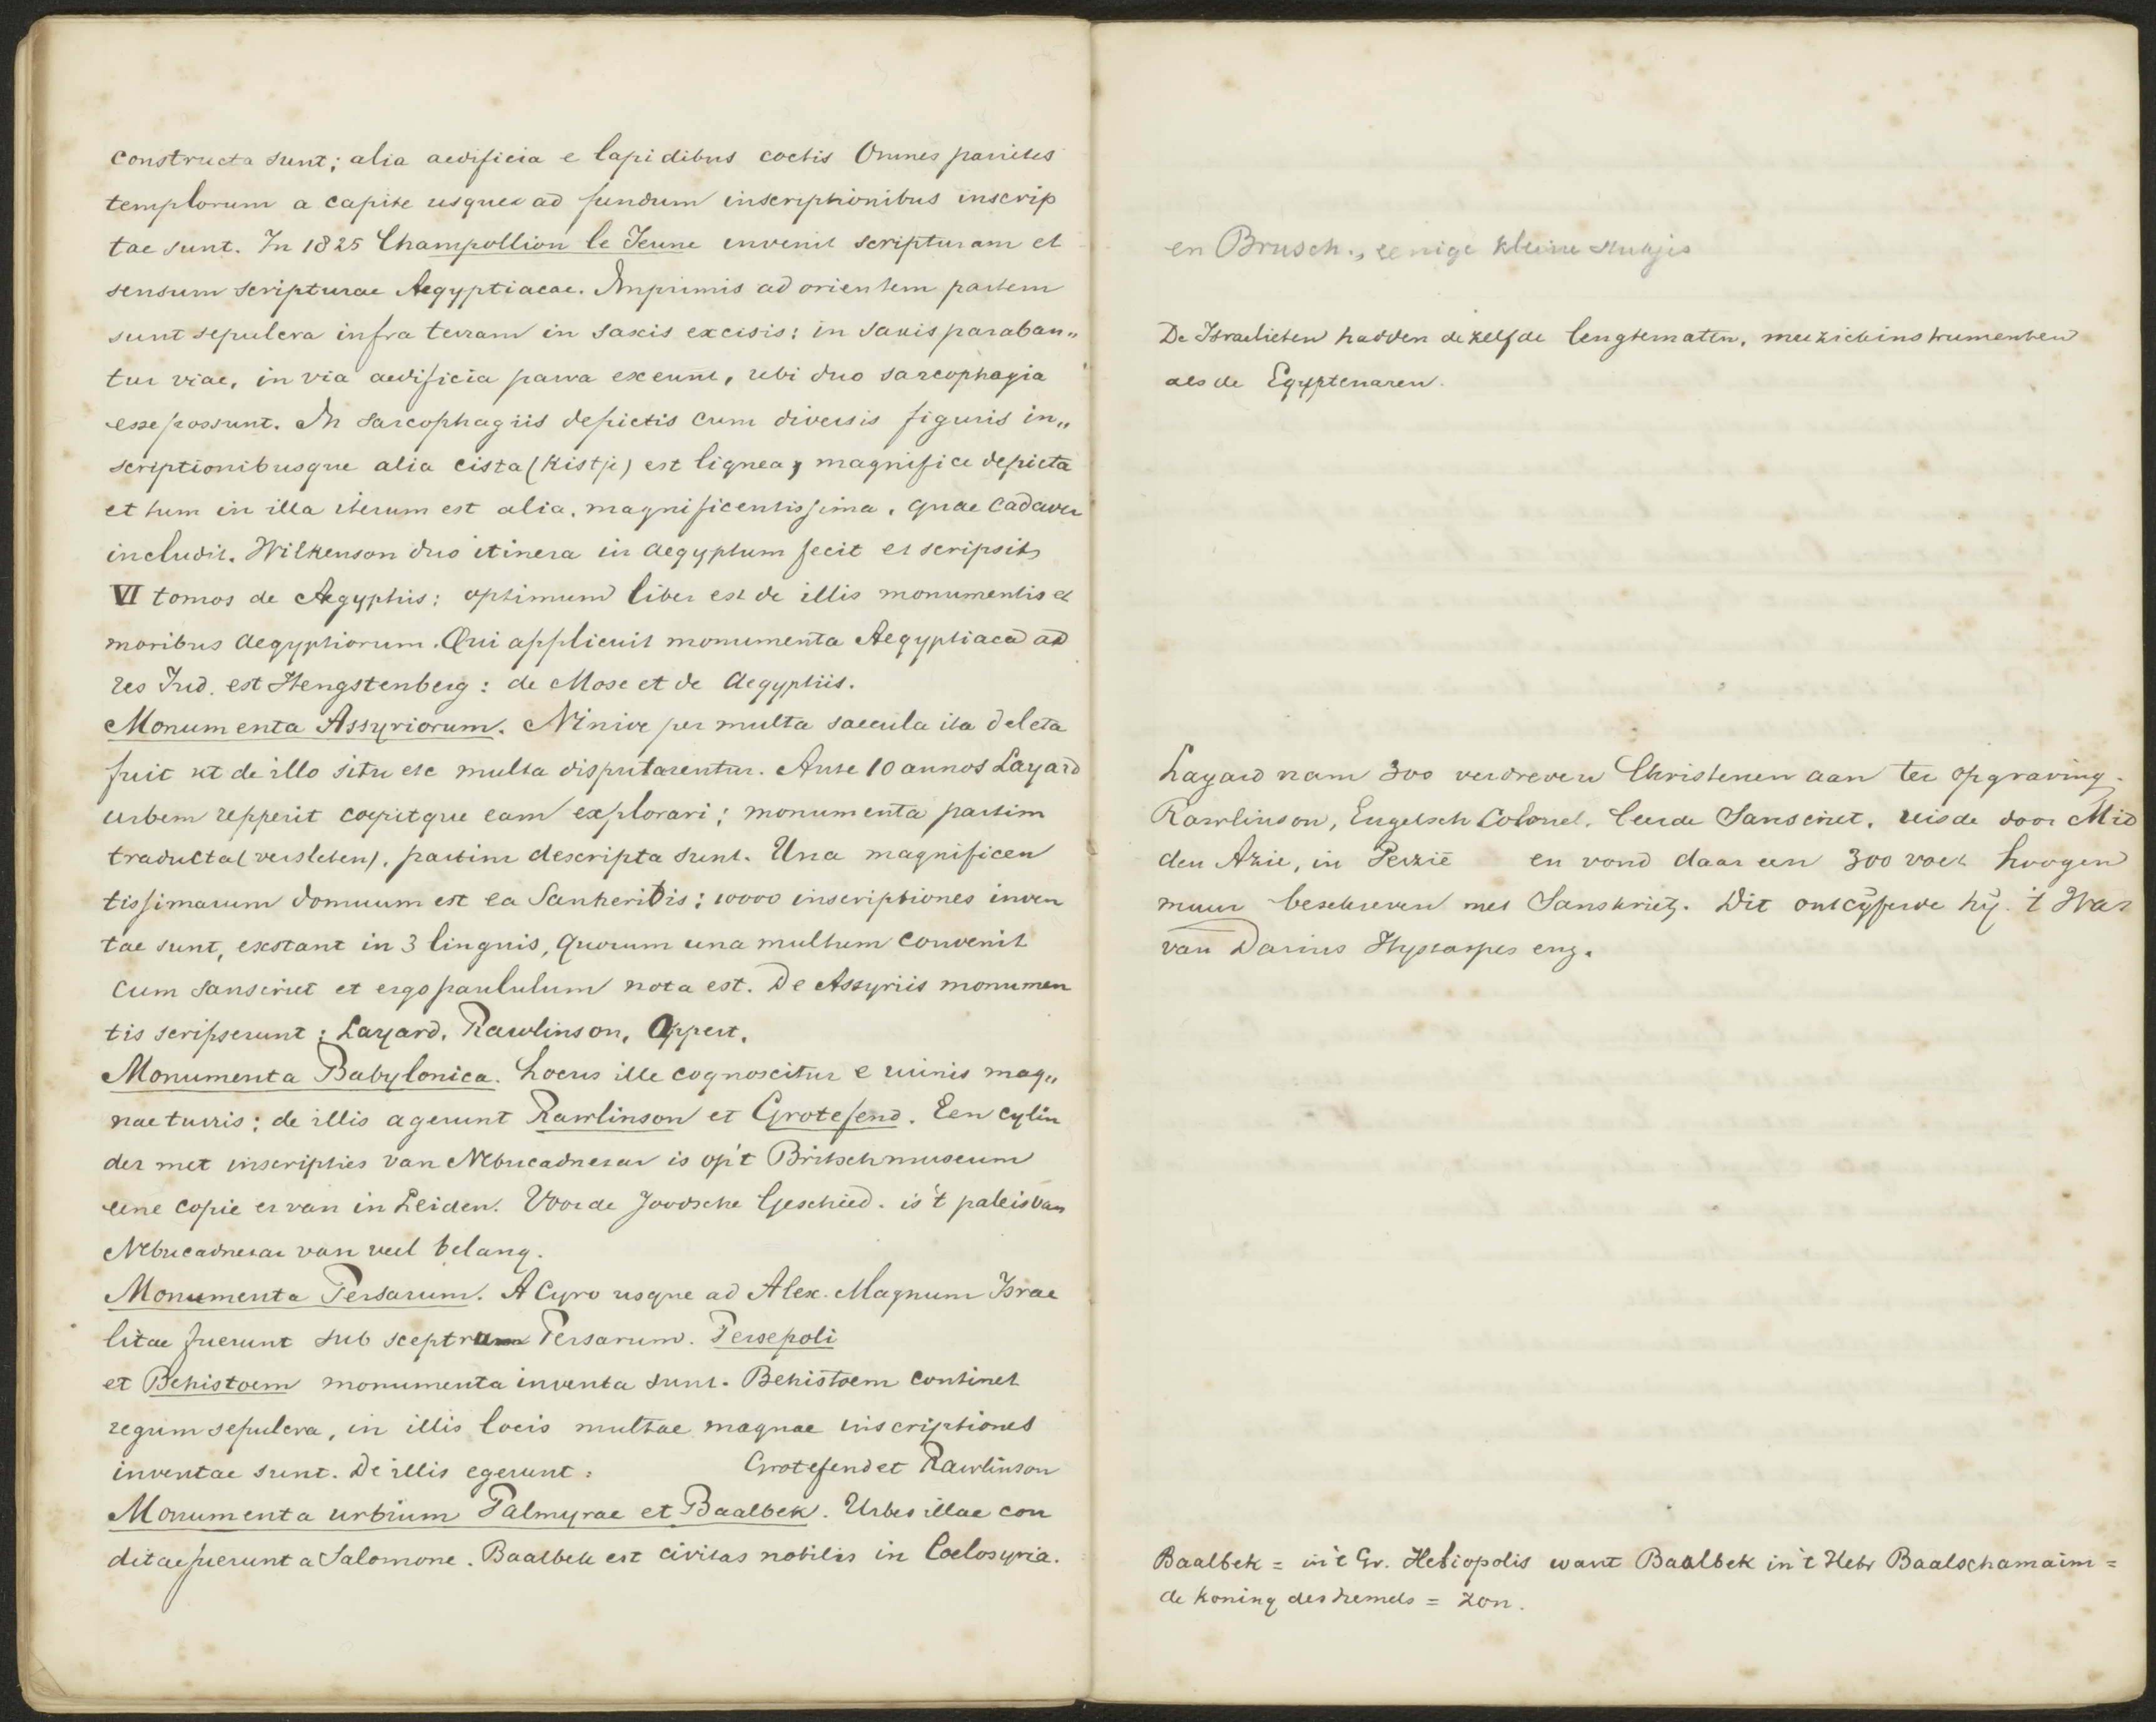 constructa sunt; alia aedificia e lapidibus coctis Omnes parietes
templorum a capite usque ad fundum inscriptionibus inscrip
tae sunt. In 1825 Champollion le Jeune invenit scripturam et
sensum scripturae Aegyptiacae. Imprimis ad orientem partem
sunt sepulcra infra terram in saxis excisis: in saxis paraban„
tur viae, in via aedificia parva exeunt, ubi duo sarcophagia
esse possunt. In sarcophagiis depictis cum diversis figuris in„
scriptionibusque alia cista (kistje) est lignea, magnifice depicta
et tum in illa iterum est alia, magnificentissima, quae cadaver
includit. Wilkenson duo itinera in Aegyptum fecit et scripsit
VI tomos de Aegyptiis: optimum liber est de illis monumentis et
moribus Aegyptiorum. Qui applicuit monumenta Aegyptiaca ad
res Jud. est Hengstenberg: de Mose et de Aegyptiis.
Monumenta Assyriorum. Ninive per multa saecula ita deleta
fuit ut de illo situ etc multa disputarentur. Ante 10 annos Layard
urbem repperit coepitque eam explorari; monumenta partim
traducta (versleten), partim descripta sunt. Una magnificen
tissimarum domuum est ea Sanheribis; 10000 inscriptiones inven
tae sunt, exstant in 3 linguis, quorum una multum convenit
cum sanscriet et ergo paululum nota est. De Assyriis monumen
tis scripserunt: Layard, Rawlinson, Oppert.
Monumenta Babylonica. Locus ille cognoscitur e ruinis mag„
nae turris; de illis agerunt Rawlinson et Grotefend. Een cylin
der met inscripties van Nebucadnezar is op 't Britsch museum
eene copie er van in Leiden. Voor de Joodsche Geschied. is 't paleis van
Nebucadnezar van veel belang.
Monumenta Persarum. A Cyro usque ad Alex. Magnum Israe
litae fuerunt sub sceptrum Persarum. Persepoli
et Behistoem monumenta inventa sunt. Behistoem continet
regum sepulcra, in illis locis multae magnae inscriptiones
inventae sunt. De illis egerunt: Grotefend et Rawlinson
Monumenta urbium Palmyrae et Baalbek. Urbes illae con
ditae fuerunt a Salomone. Baalbek est civitas nobilis in Coelosyria.
en Brusch., eenige kleine stukjes
De Israelieten hadden dezelfde lengtematen, muziekinstrumenten
als de Egyptenaren.
Layard nam 300 verdreven Christenen aan ter opgraving.
Rawlinson, Engelsch Colonel, leerde Sanscriet, reisde door Mid
den Azie, in Perzië en vond daar een 300 voet hoogen
muur beschreven met Sanskriet. Dit ontcijferde hij. 't Was
van Darius Hystaspes enz.
Baalbek = in 't Gr. Heliopolis want Baalbek in 't Hebr Baalschamaim =
de koning des hemels = zon.